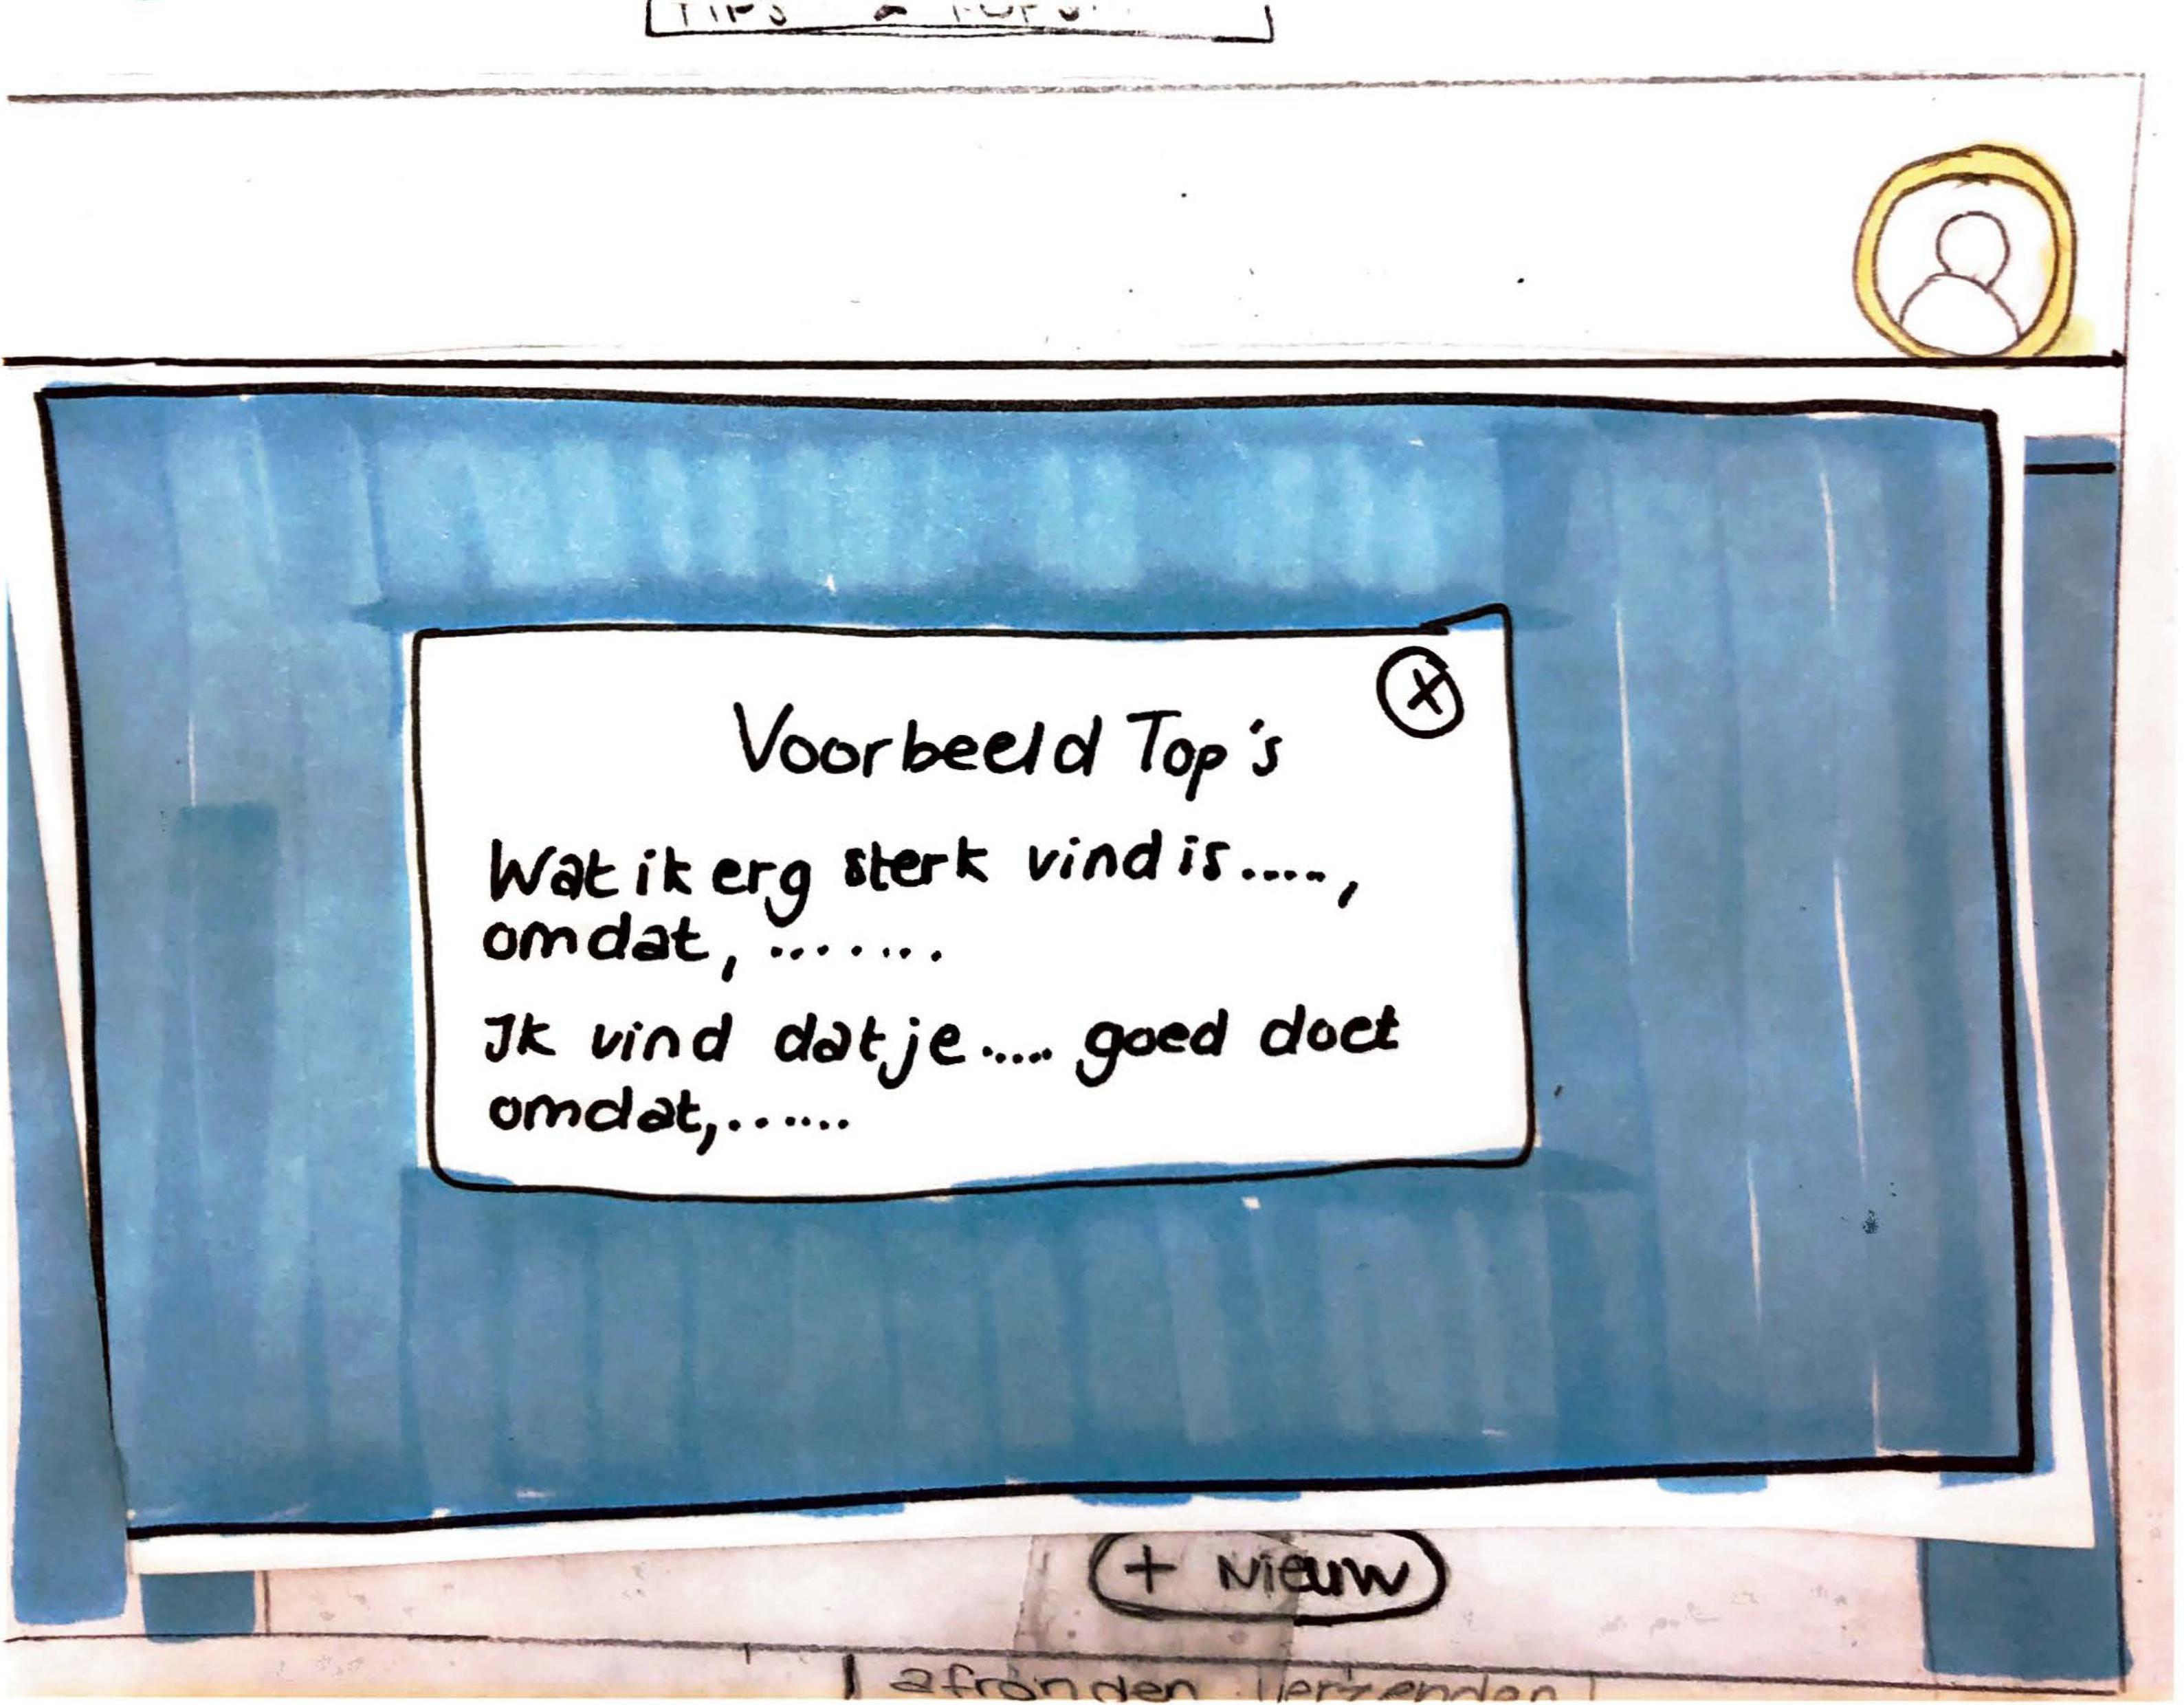 TIPS
Voorbeeld Top's
Wat ik erg sterk vind is.....,
omdat, .......
Ik vind dat je..... goed doet
omdat,......
+ Nieuw
afronden